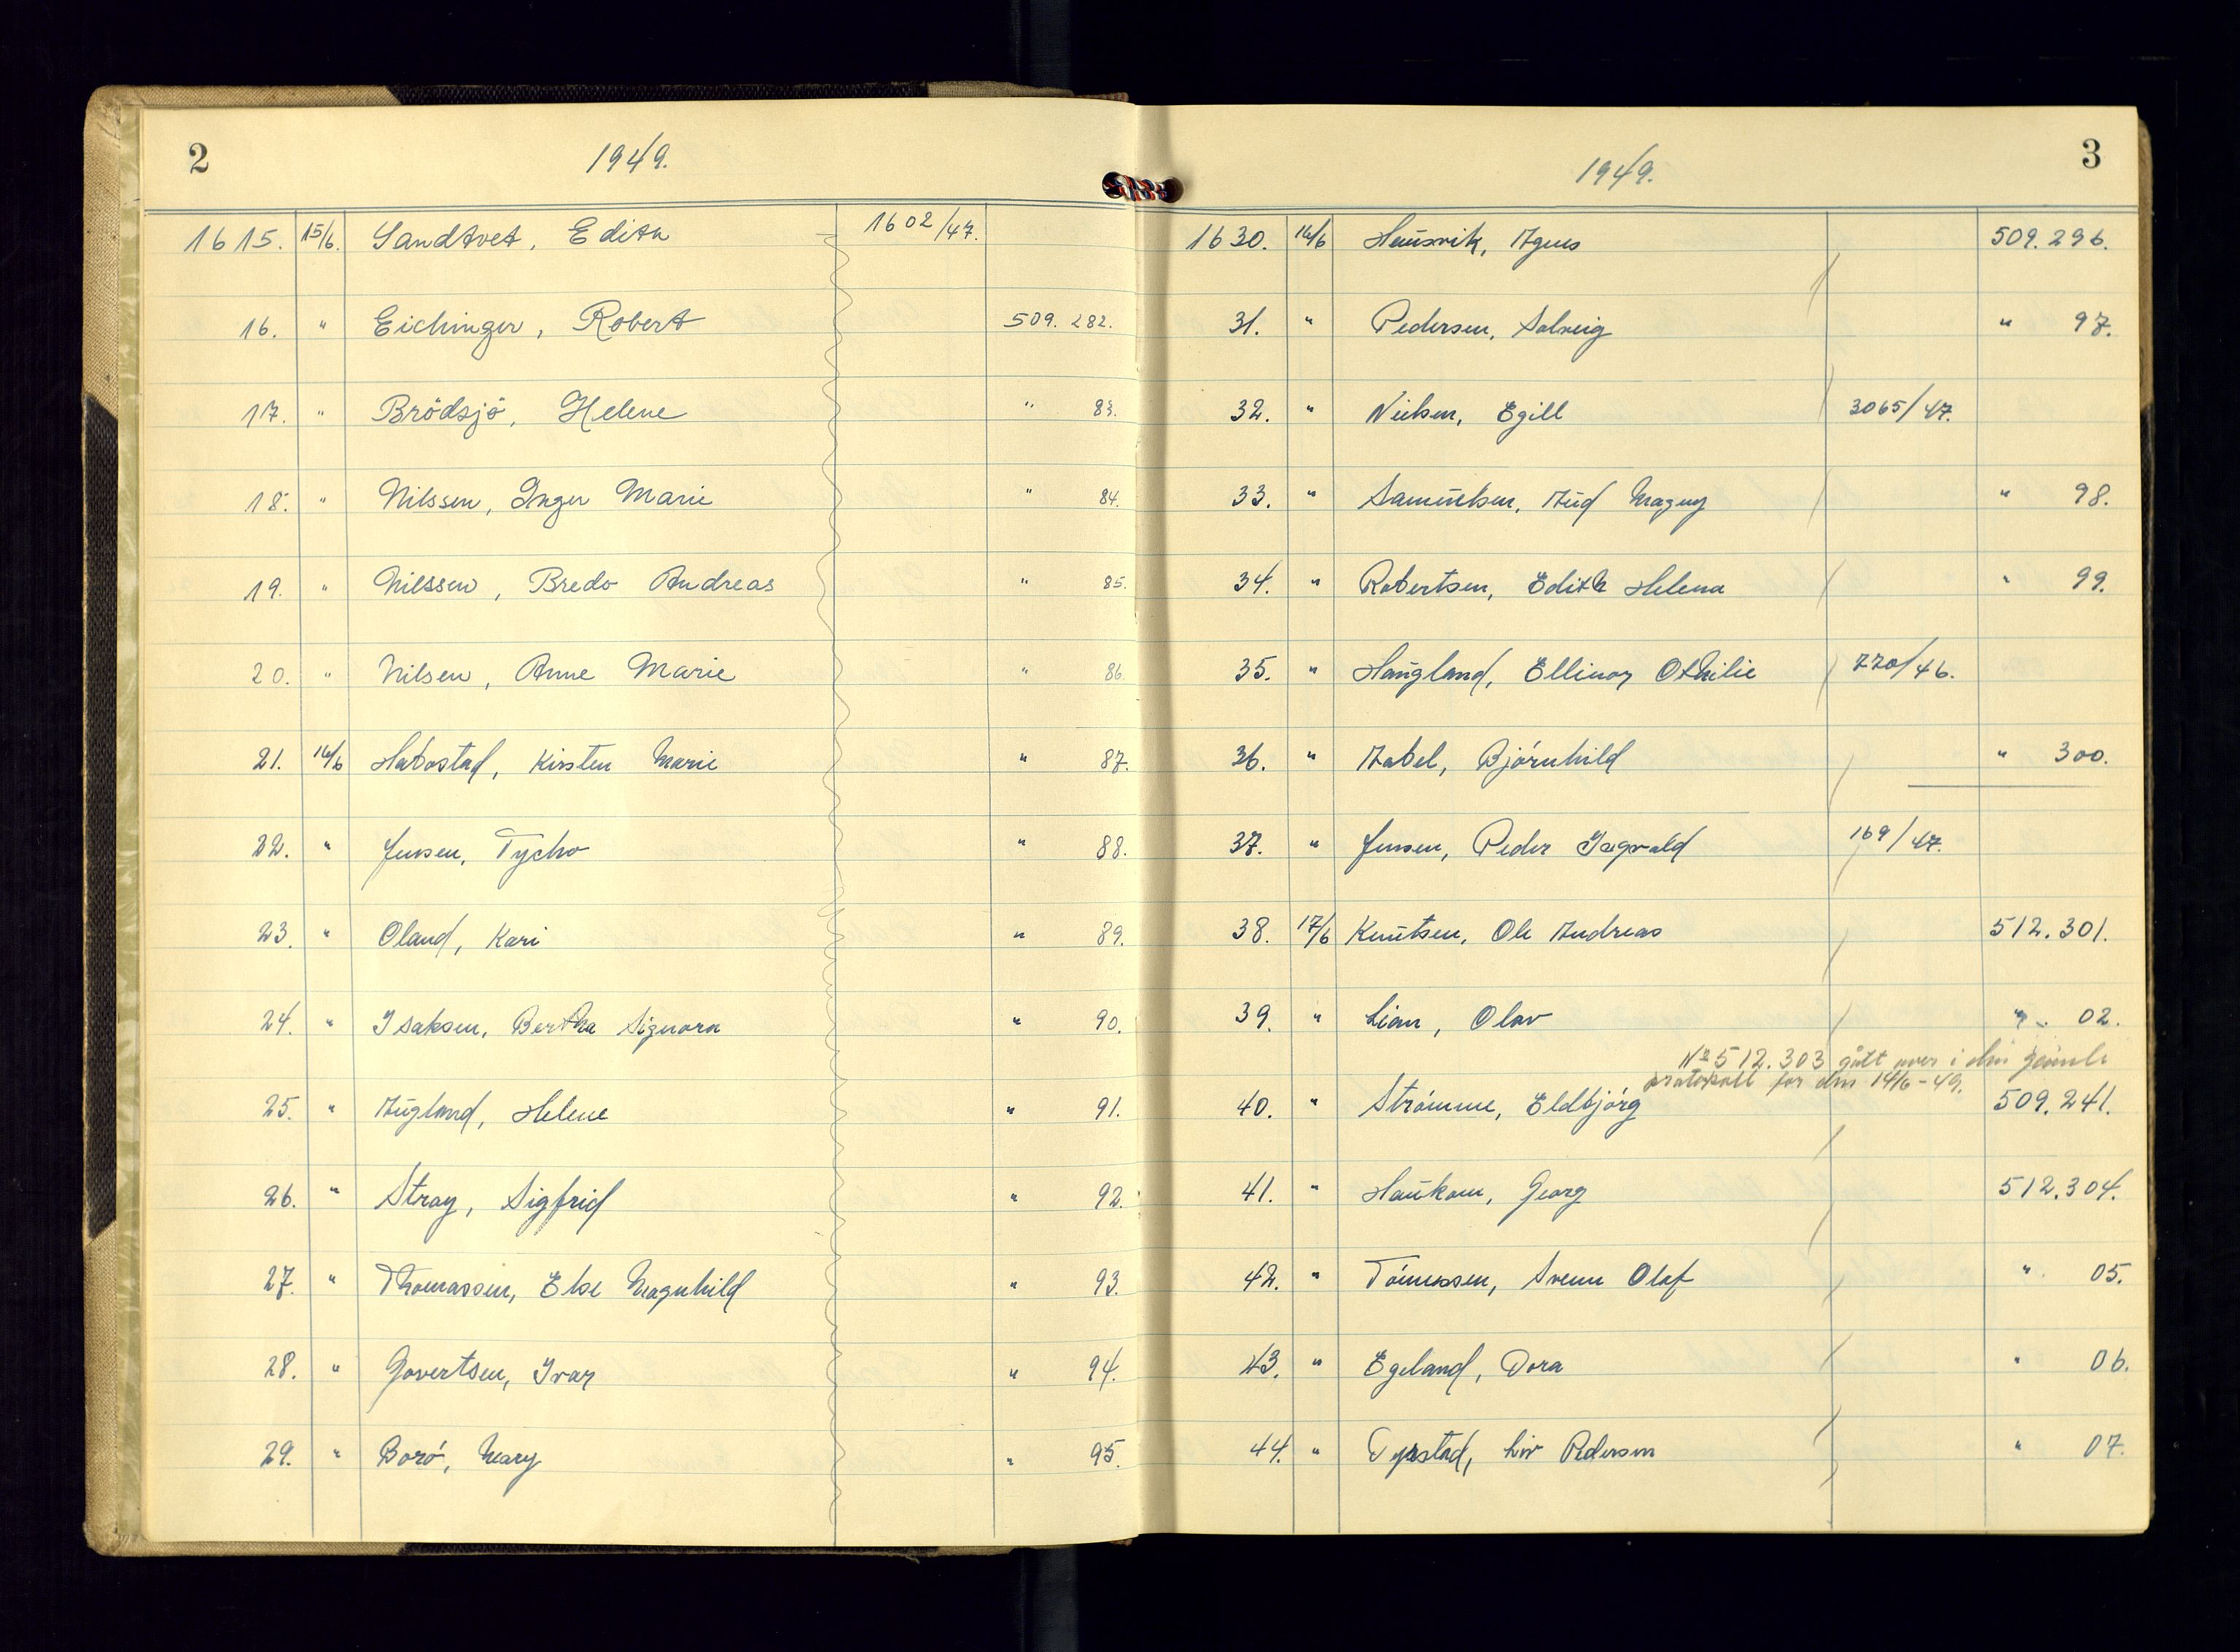 2
1949.
1615. 15/6. Sandtvet, Edith 1602/47.
16. " Eichinger, Robert 509.282.
17. " Brödsjö, Helene " 83.
18. " Nilssen, Inger Marie " 84.
19. " Nilssen, Bredo Andreas " 85.
20. " Nilsen, Anne Marie " 86.
21. 16/6 Habostad, Kirsten Marie " 87.
22. " Jensen, Tycho " 88.
23. " Oland, Kari " 89.
24. " Isaksen, Bertha Signora " 90.
25. " Augland, Helene " 91.
26. " Stray, Sigfrid " 92.
27. " Thomassen, Else Magnhild " 93.
28. " Govertsen, Ivar " 94.
29. " Borö, Mary " 95.
3
1949.
1630. 16/6 Hausvik, Agnes 509.296.
31. " Pedersen, Solveig " 97.
32. " Nielsen, Egill 3065/47.
33. " Samuelsen, Aud Magny " 98.
34. " Robertsen, Edith Helena " 99.
35. " Haugland, Ellinor Othilie 770/46.
36. " Aabel, Björnhild " 300.
37. " Jensen, Peder Ingvald 169/47.
38. 17/6 Knutsen, Ole Andreas 512.301.
39. " Lian, Olav " 02.
No 512.303 gått over i den gamle
protokoll for den 14/6-49.
40. " Strömme, Eldbjörg 509.241.
41. " Haukom, Georg 512.304.
42. " Tönnessen, Svenn Olaf " 05.
43. " Egeland, Dora " 06.
44. " Tyrstad, Liv Pedersen " 07.